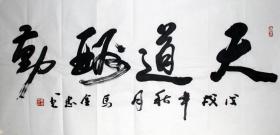 天道酬勤
戊戌年秋月馬金忠書